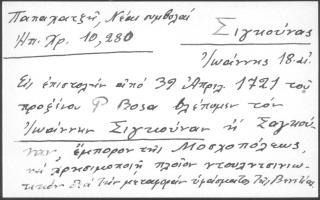 Παπαχατζῆ, Νέαι συμβολαί
Ἠπ. Χρ. 10, 280
Σιγκούνας
Ἰωάννης 18. αἰ.
Εἰς ἐπιστολὴν ἀπὸ 39 Ἀπριλ. 1721 τοῦ
προξένου P Bosa βλέπομεν τὸν
Ἰωάννην Σιγκούναν ἢ Σαγκού-
ναν, ἔμπορον τῆς Μοσχοπόλεως,
νὰ χρησιμοποιῇ πλοῖον ντουλτσινιω-
τικὸν διὰ τὴν μεταφορὰν ὑφάσματος Βενετίας.